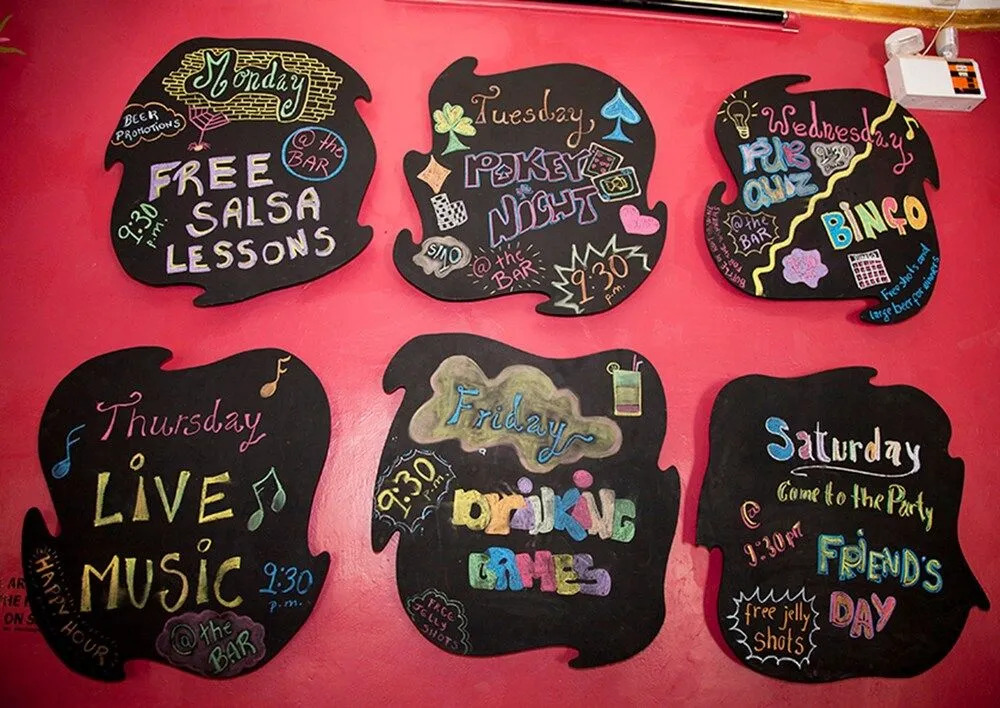 Monday
BEER
PROMOTIONS
@ the
BAR
FREE
SALSA
LESSONS
1:30
p.m.
Tuesday
POKEY
NIGHT
@ the
BAR
9:30
p.m.
Wednesday
PUB
QUIZ
@ the
BAR
BINGO
BINGO
Free shots and
large beer for winners
Thursday
LIVE
MUSIC
9:30
p.m.
HAPPY HOUR
@ the
BAR
Friday
9:30
p.m.
DRiNKiNG
GAMES
FREE
JELLY
SHOTS
Saturday
Come to the Party
@
9:30PM
FRIEND'S
DAY
free jelly
shots
ON S